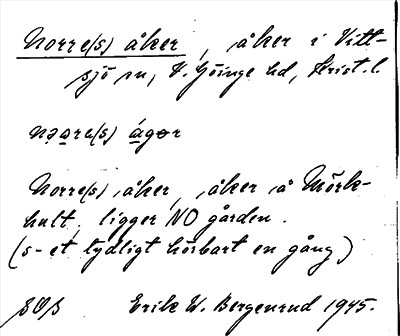 Norre(s) åker, åker i Vitt-
sjö sn, V. Göinge hd, Krist. l.
nǫare(s) ágər
Norre(s) åker, åker å Mörk-
hult, ligger NO gården.
(s-et tydligt hörbart en gång)
Erik W. Bergenrud 1945.